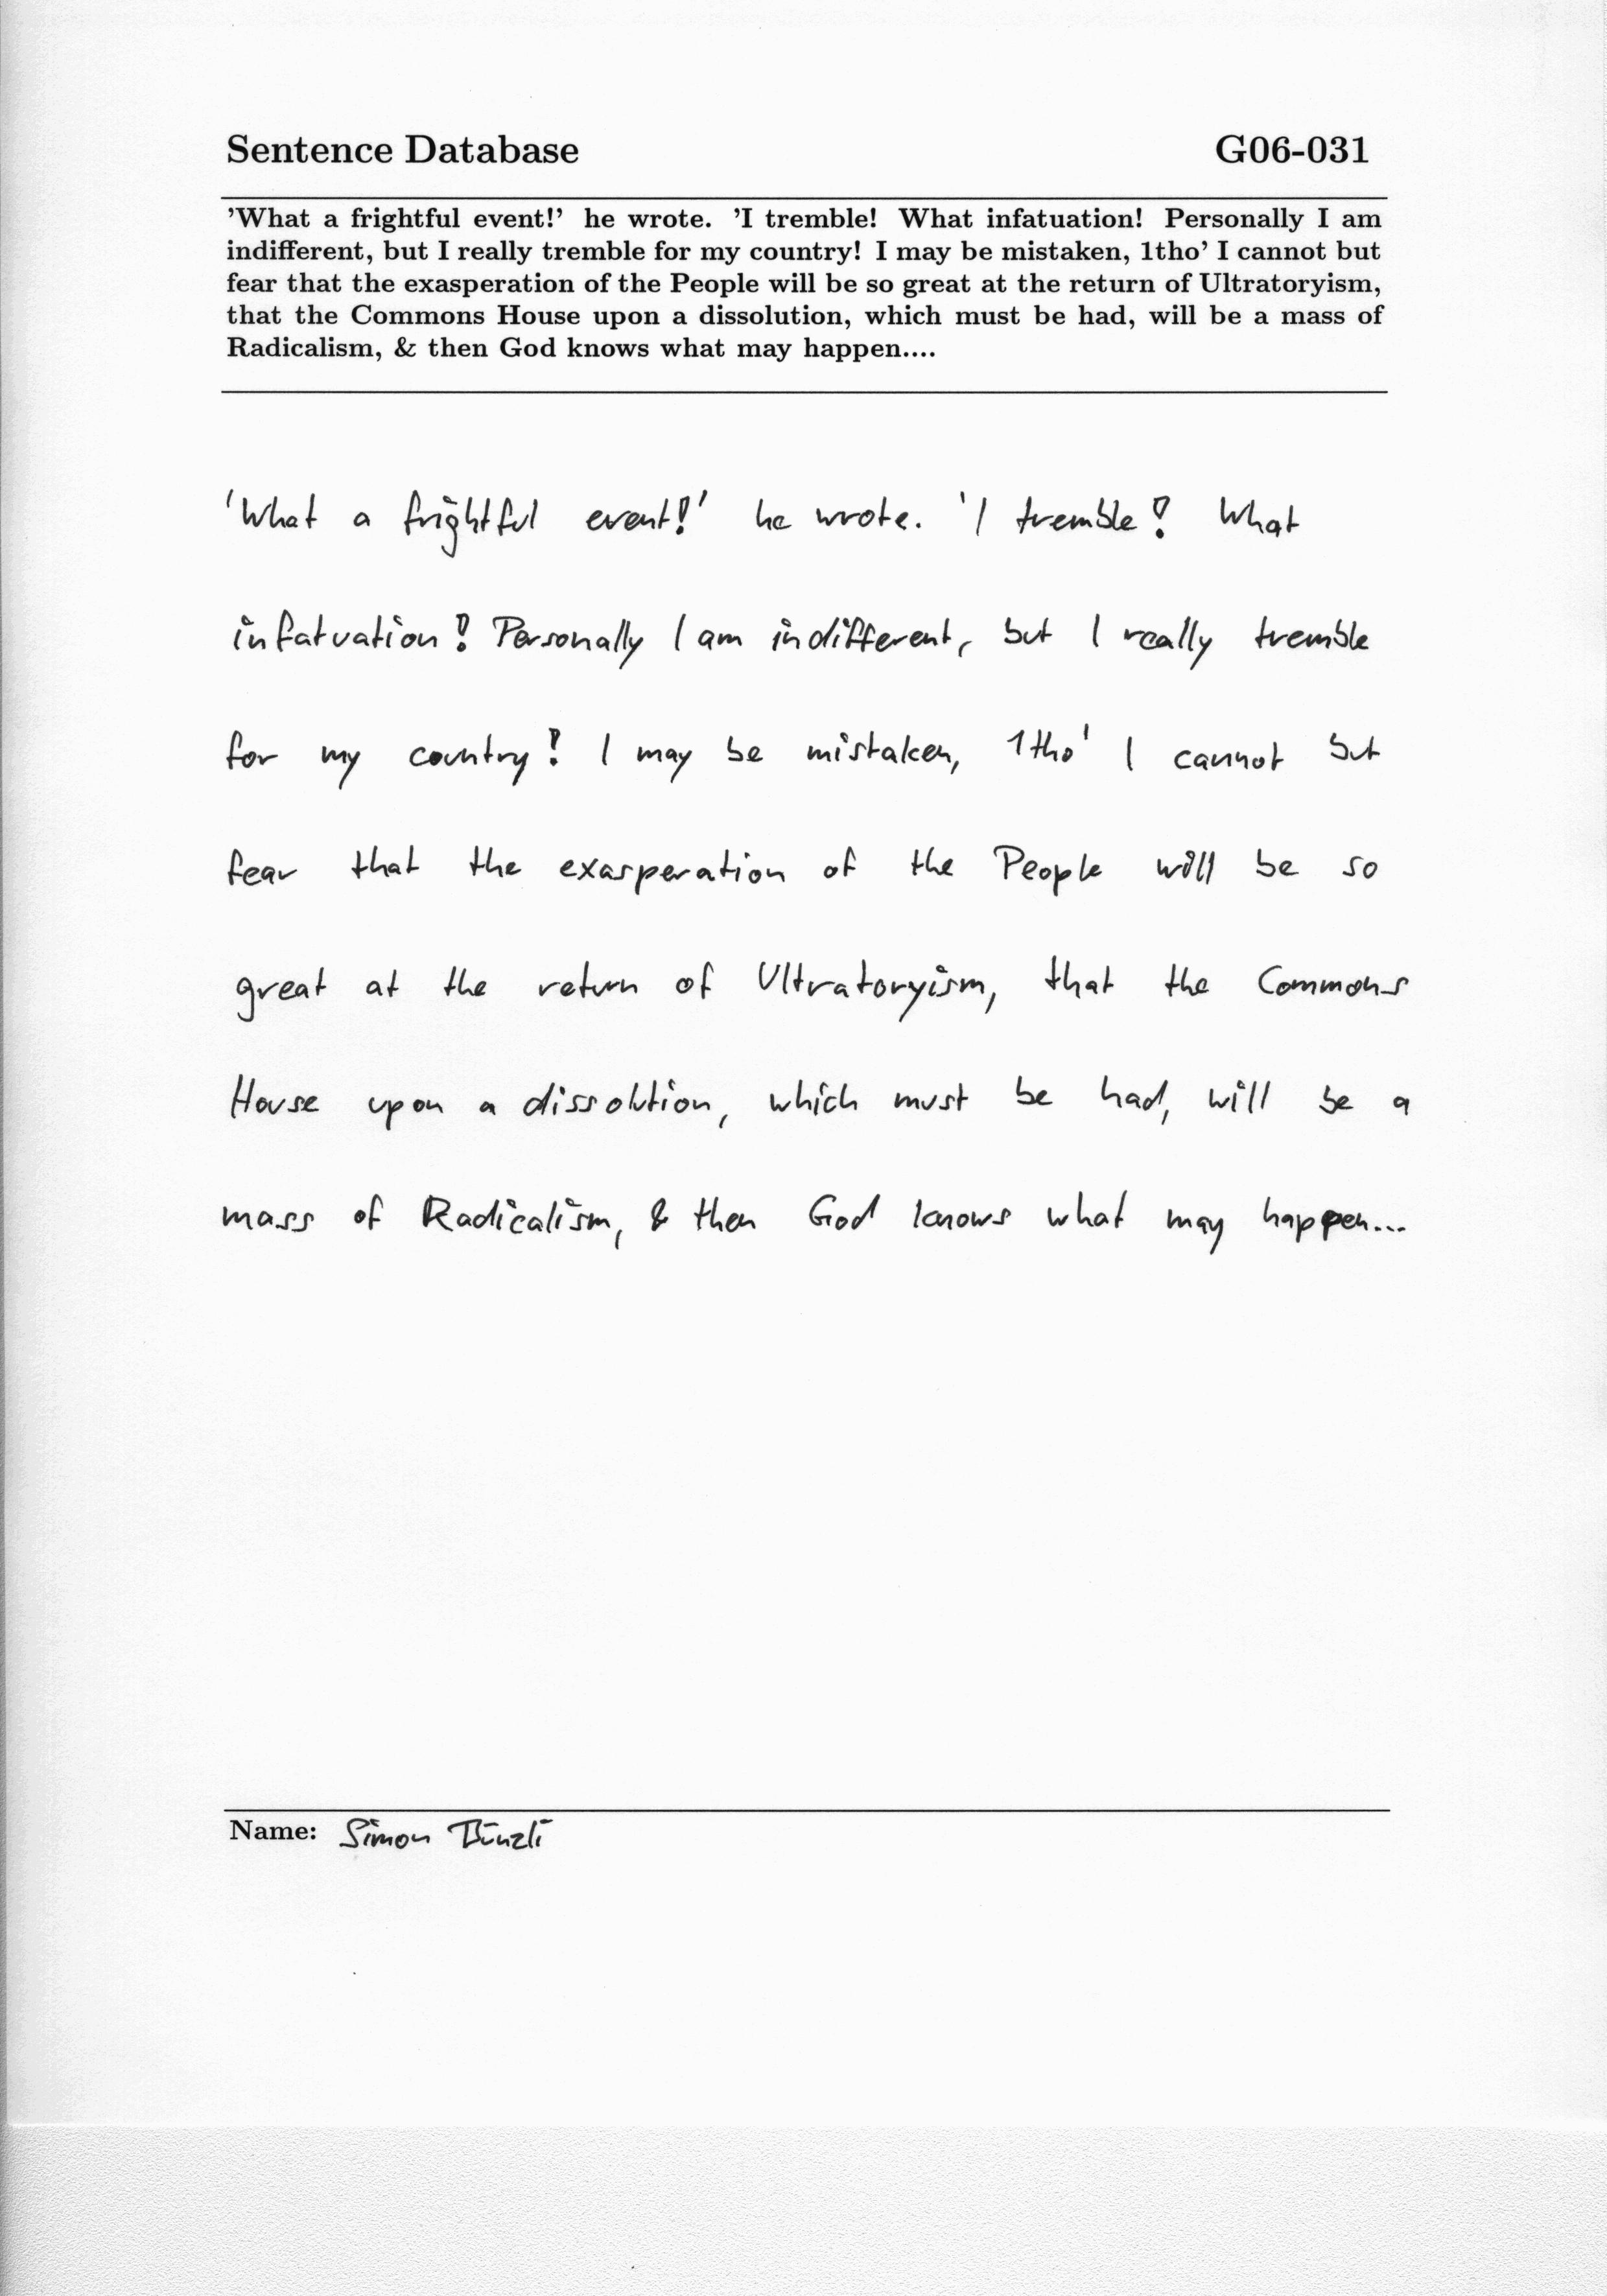 Sentence Database G06-031
'What a frightful event!' he wrote. 'I tremble! What infatuation! Personally I am
indifferent, but I really tremble for my country! I may be mistaken, 1tho' I cannot but
fear that the exasperation of the People will be so great at the return of Ultratoryism,
that the Commons House upon a dissolution, which must be had, will be a mass of
Radicalism, & then God knows what may happen....
'What a frightful event!' he wrote. 'I tremble! What
infatuation! Personally I am indifferent, but I really tremble
for my country! I may be mistaken, 1tho' I cannot but
fear that the exasperation of the People will be so
great at the return of Ultratoryism, that the Commons
House upon a dissolution, which must be had, will be a
mass of Radicalism, & then God knows what may happen...
Name: Simon Bünzli